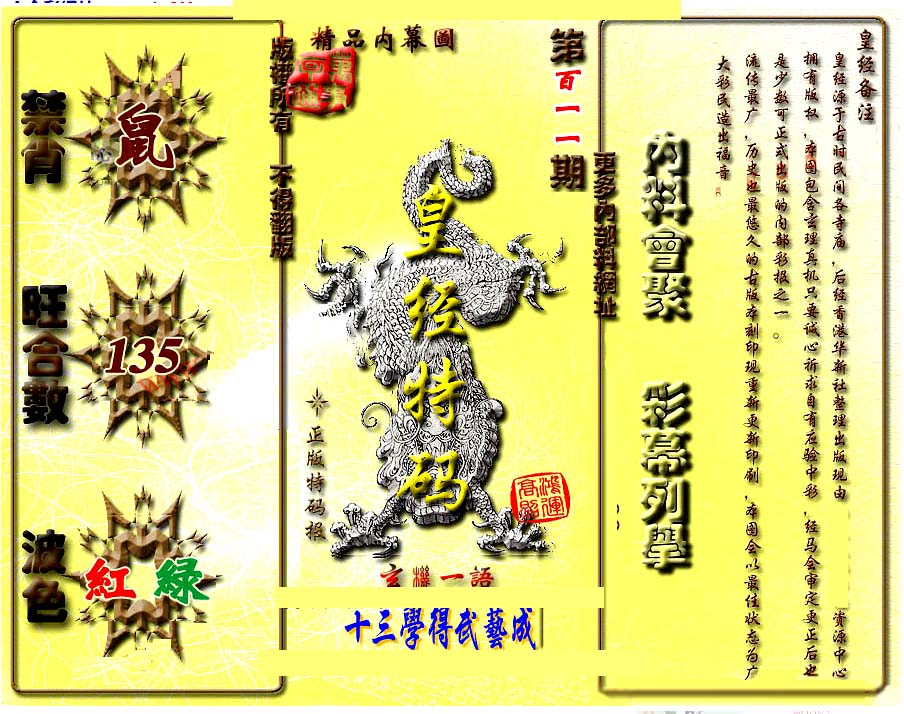 精品內幕圖
第百一一期
版權所有 不得翻版
更多內部料網址
禁肖
鼠
旺合數
135
波色
紅 綠
皇经特码
正版特码报
鴻運高照
玄機一語
十三學得武藝成
內料會聚 彩幕列舉
皇经备注
皇经源于古时民间各寺庙，后经香港华新社整理出版现由 资源中心
拥有版权，本图包含玄理真机只要诚心祈求自有应验中彩，经马会审定更正后也
是少数可正式出版的内部彩报之一。
流传最广，历史也最悠久的古版本刻印现重新更新印刷，本图会以最佳状态为广
大彩民造出福音